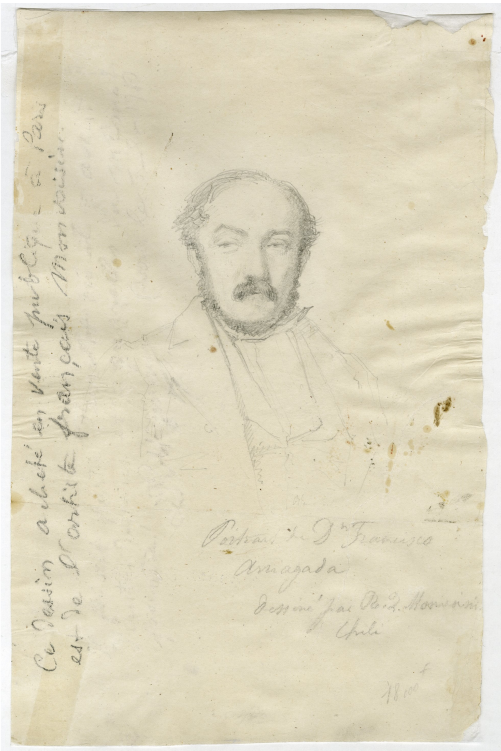 Ce dessin acheté en vente publique à Paris
est de l'artiste français Monvoisin.
Portrait de Dn Francisco
Arriagada
dessiné par Monvoisin
Chili